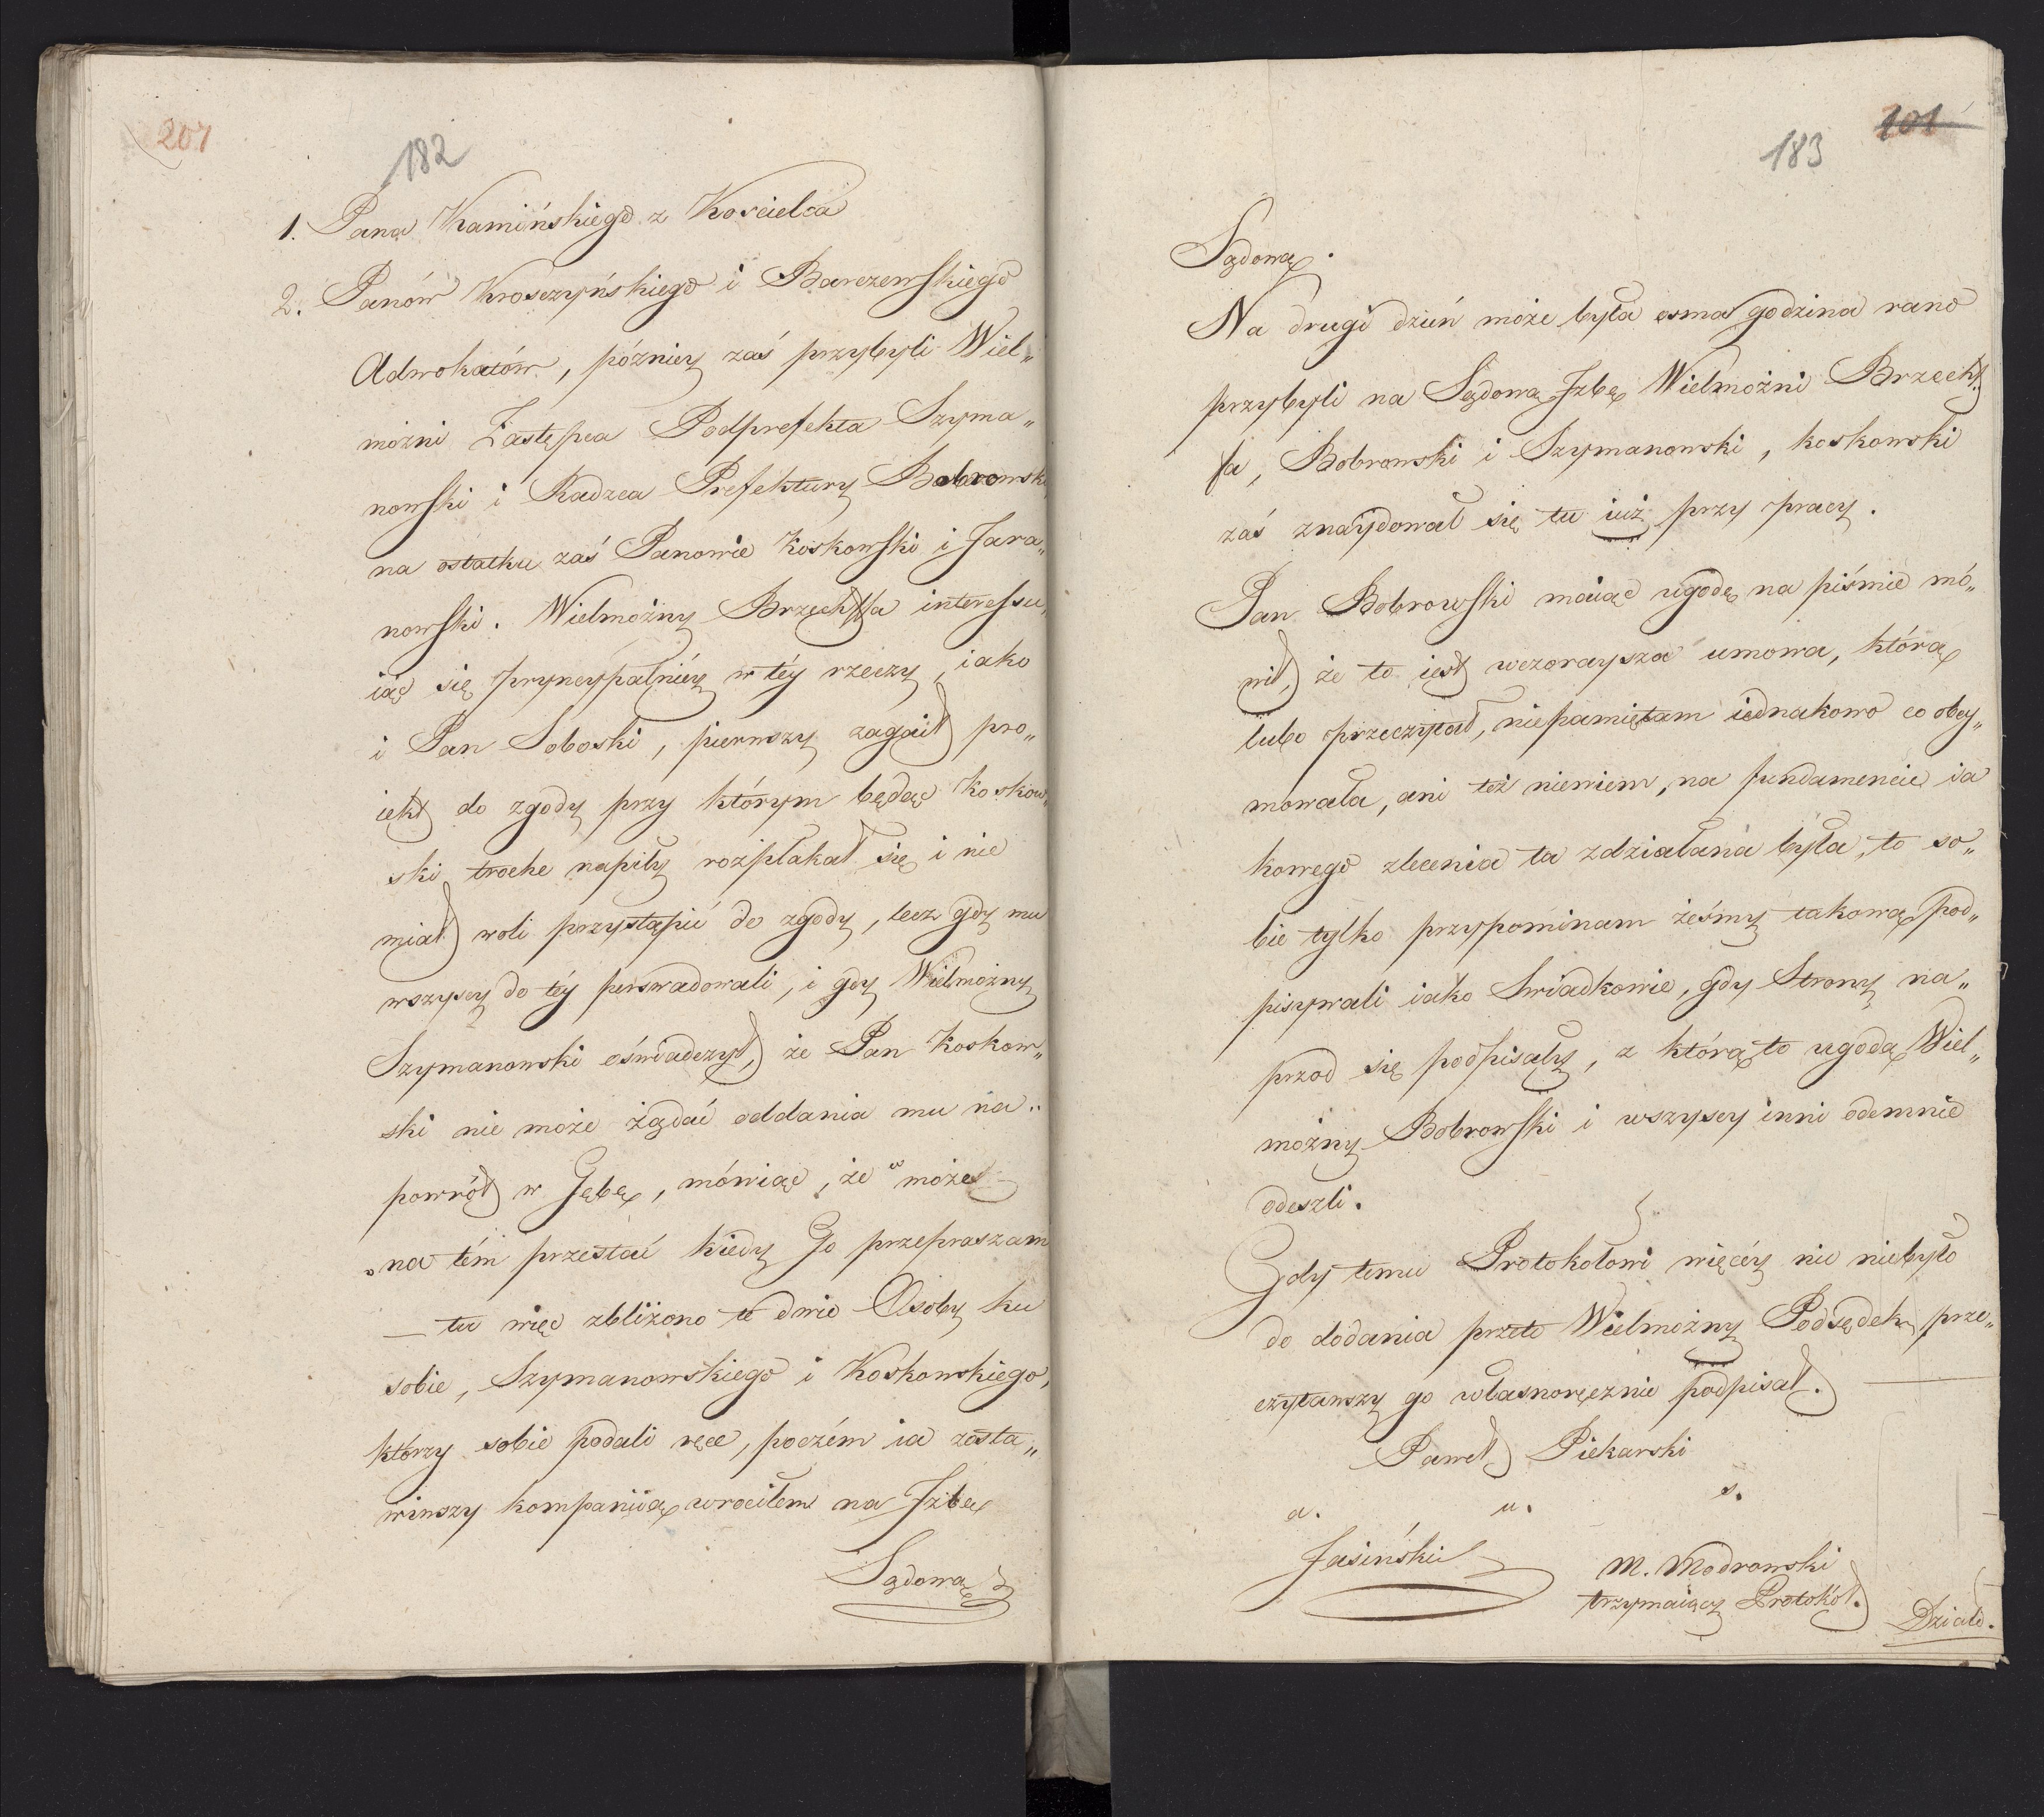 207
182
1. Pana Kamińskiego z Koscielca
2. Panów Kroszyńskiego i Barczewskiego
Adwokatów, pózniey zaś przybyli Wiel„
możni Zastępca Podprefekta Szyma„
nowski i Radzca Prefektury Bobrowski
na ostatku zaś Panowie Koskowski i Jara„
nowski. Wielmożny Brzechffa interessu„
iąc się pryncypalniéy w téy rzeczy, iako
i Pan Soboski, pierwszy zagaił pro„
iekt do zgody przy którym będąc Koskow„
ski troche napiły rozpłakał się i nie
miał woli przystąpić do zgody, lecz gdy mu
wszyscy do téy perswadowali, i gdy Wielmożny
Szymanowski oświadczył, że Pan Koskow„
ski nie może żądać oddania mu na„
powrót w Gębę, mówiąc, że " może
„na tém przestać kiedy Go przepraszam
— tu więc zbliżono te dwie Osoby ku
sobie, Szymanowskiego i Koskowskiego,
którzy sobie podali ręce, poczém ia zosta„
wiwszy kompaniią wrociłem na Jzbę
Sądową
101
183
Sądową.
Na drugi dzień może była osma godzina rano
przybyli na Sądową Jzbę Wielmożni Brzechf„
fa, Bobrowski i Szymanowski, koskowski
zaś znaydował się tu iuż przy pracy.
Pan Bobrowski maiąc ugodę na piśmie mó„
wił, że to iest wczoraysza umowa, którą
lubo przeczytał, niepamiętam iednakowo co obey„
mowała, ani też niewiem, na fundamencie ia
kowego zlecenia ta zdziałana była, to so„
bie tylko przypominam żeśmy takową pod„
pisywali iako Swiadkowie, gdy Strony na„
przod się podpisały, z którą to ugodą Wiel„
możny Bobrowski i wszyscy inni odemnie
odeszli.
Gdy temu Protokołowi więcéy nic niebyło
do dodania przeto Wielmożny Podsędek, prze„
czytawszy go własnoręcznie podpisał.
Paweł Piekarski
a. u. s.
Jasiński
M. Modrowski
trzymaiący Protokół.
Działo.